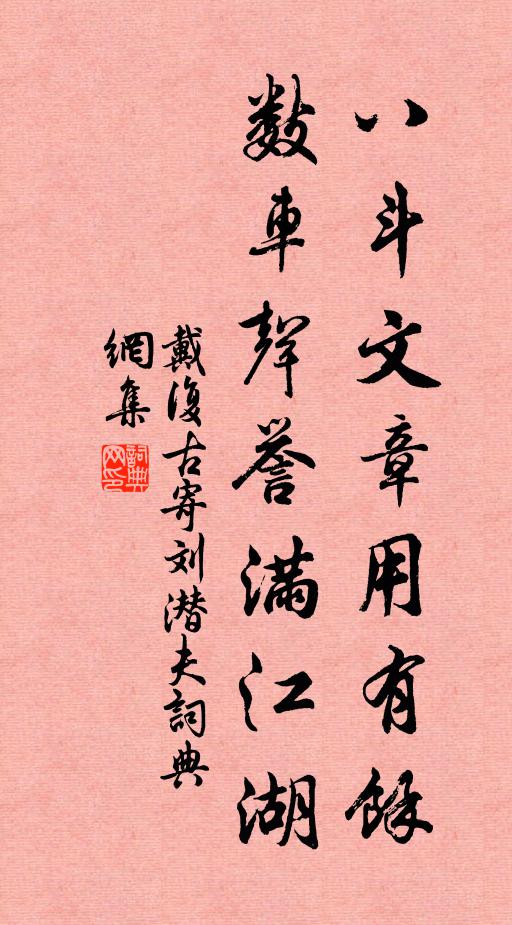 八斗文章用有餘
数車聲譽满江湖
戴復古寄刘潜夫詞典
網集
詞典网印